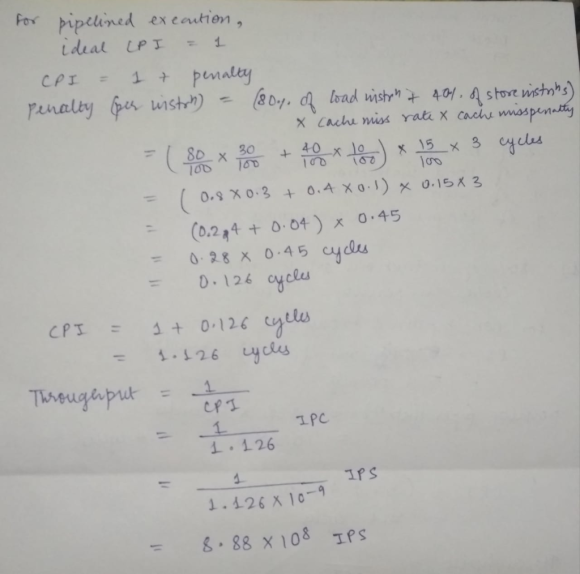 For pipelined execution,
ideal CPI = 1
CPI = 1 + penalty
Penalty (per instrn) = (80% of load instrn + 40% of store instrns)
× cache miss rate × cache miss penalty
= ( 80/100 × 30/100 + 40/100 × 10/100 ) × 15/100 × 3 cycles
= ( 0.8 × 0.3 + 0.4 × 0.1 ) × 0.15 × 3
= (0.24 + 0.04) × 0.45
= 0.28 × 0.45 cycles
= 0.126 cycles
CPI = 1 + 0.126 cycles
= 1.126 cycles
Throughput = 1/CPI
= 1/1.126 IPC
= 1/(1.126 × 10⁻⁹) IPS
= 8.88 × 10⁸ IPS